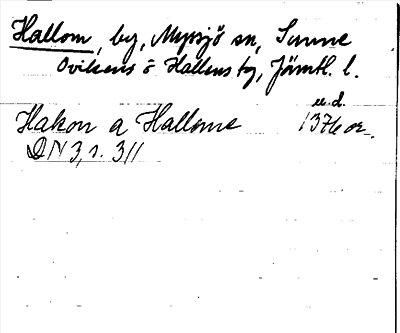 Hallom, by, Myssjö sn, Sunne
Ovikens o Hallens tg, Jämtl. l.
u.d.
Hakon a Hallome 1376 or.
DN 3, s. 311